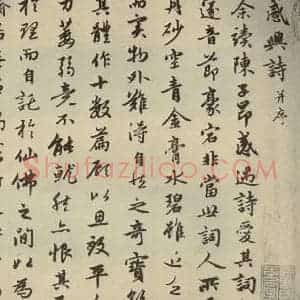 感興詩 并序
余讀陳子昂感遇詩愛其詞
邃音節豪宕非當世詞人所
丹砂空青金膏水碧雖近乏
而實物外難得自然之奇寶
其體作十數篇顧以思致平
力萎弱竟不能就然亦恨其
於理而自託於仙佛之間以為
Shufaziliao.com